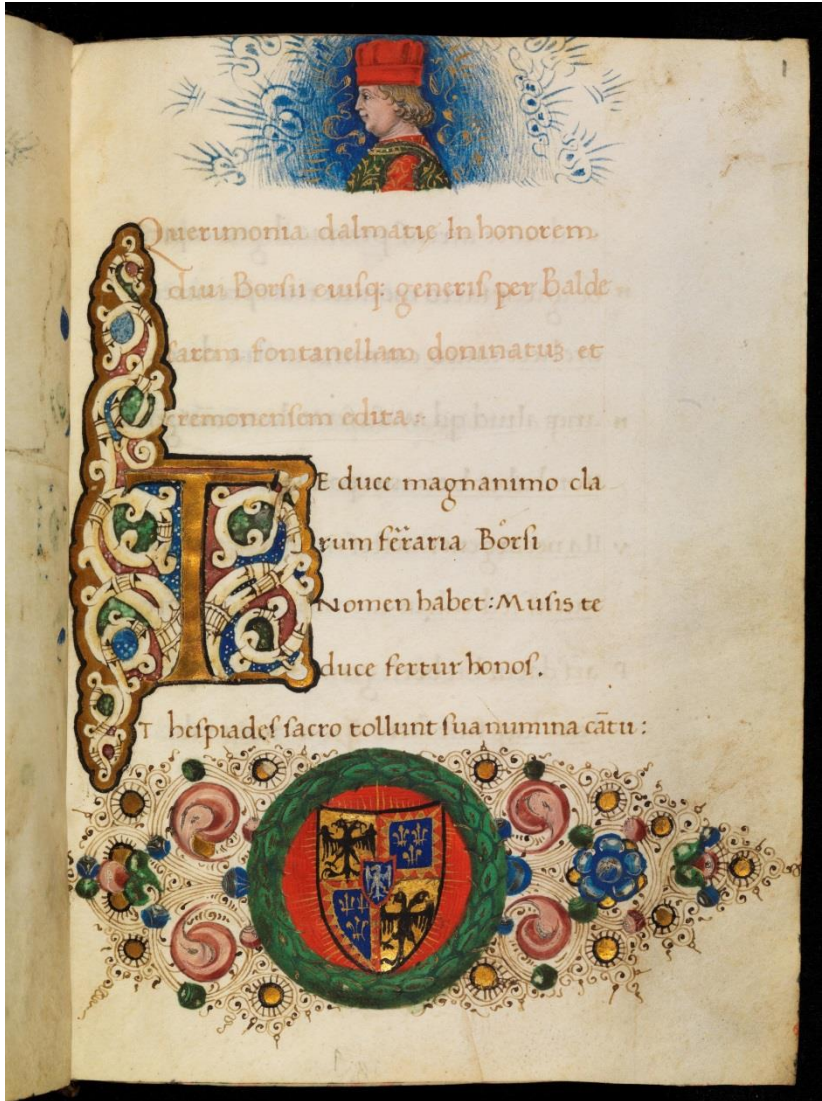 1
Querimonia dalmatię In honorem
diui Borsii eiusq: generis per Balde
sarem fontanellam doninatuʒ et
cremonensem edita:
TE duce magnanimo cla
rum fe͂raria Borsi
Nomen habet: Musis te
duce fertur honos.
T hespiades sacro tollunt sua numina ca͂tu: